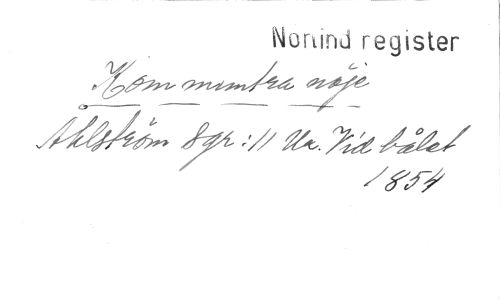 Norlind register
Kom muntra nöje
Ahlström 8gr :11 Ur. Vid bålet
1854